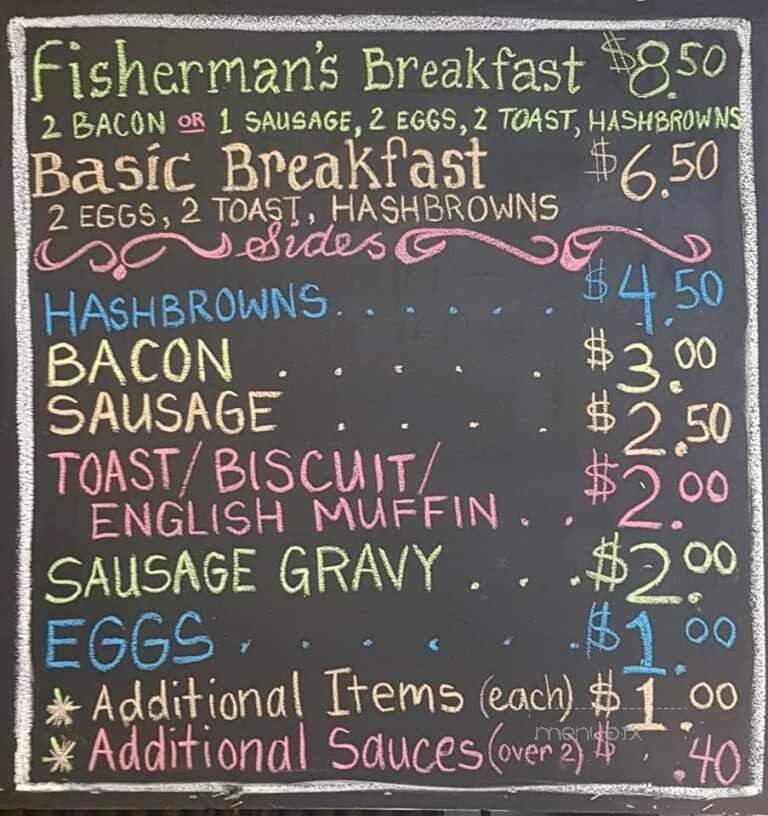 Fisherman's Breakfast $8.50
2 BACON OR 1 SAUSAGE, 2 EGGS, 2 TOAST, HASHBROWNS
Basic Breakfast $6.50
2 EGGS, 2 TOAST, HASHBROWNS
Sides
HASHBROWNS. . . . . . $4.50
BACON . . . . . $3.00
SAUSAGE . . . . $2.50
TOAST/BISCUIT/
ENGLISH MUFFIN . . $2.00
SAUSAGE GRAVY . . . $2.00
EGGS . . . . . $1.00
* Additional Items (each) $1.00
menupix
* Additional Sauces (over 2) $.40